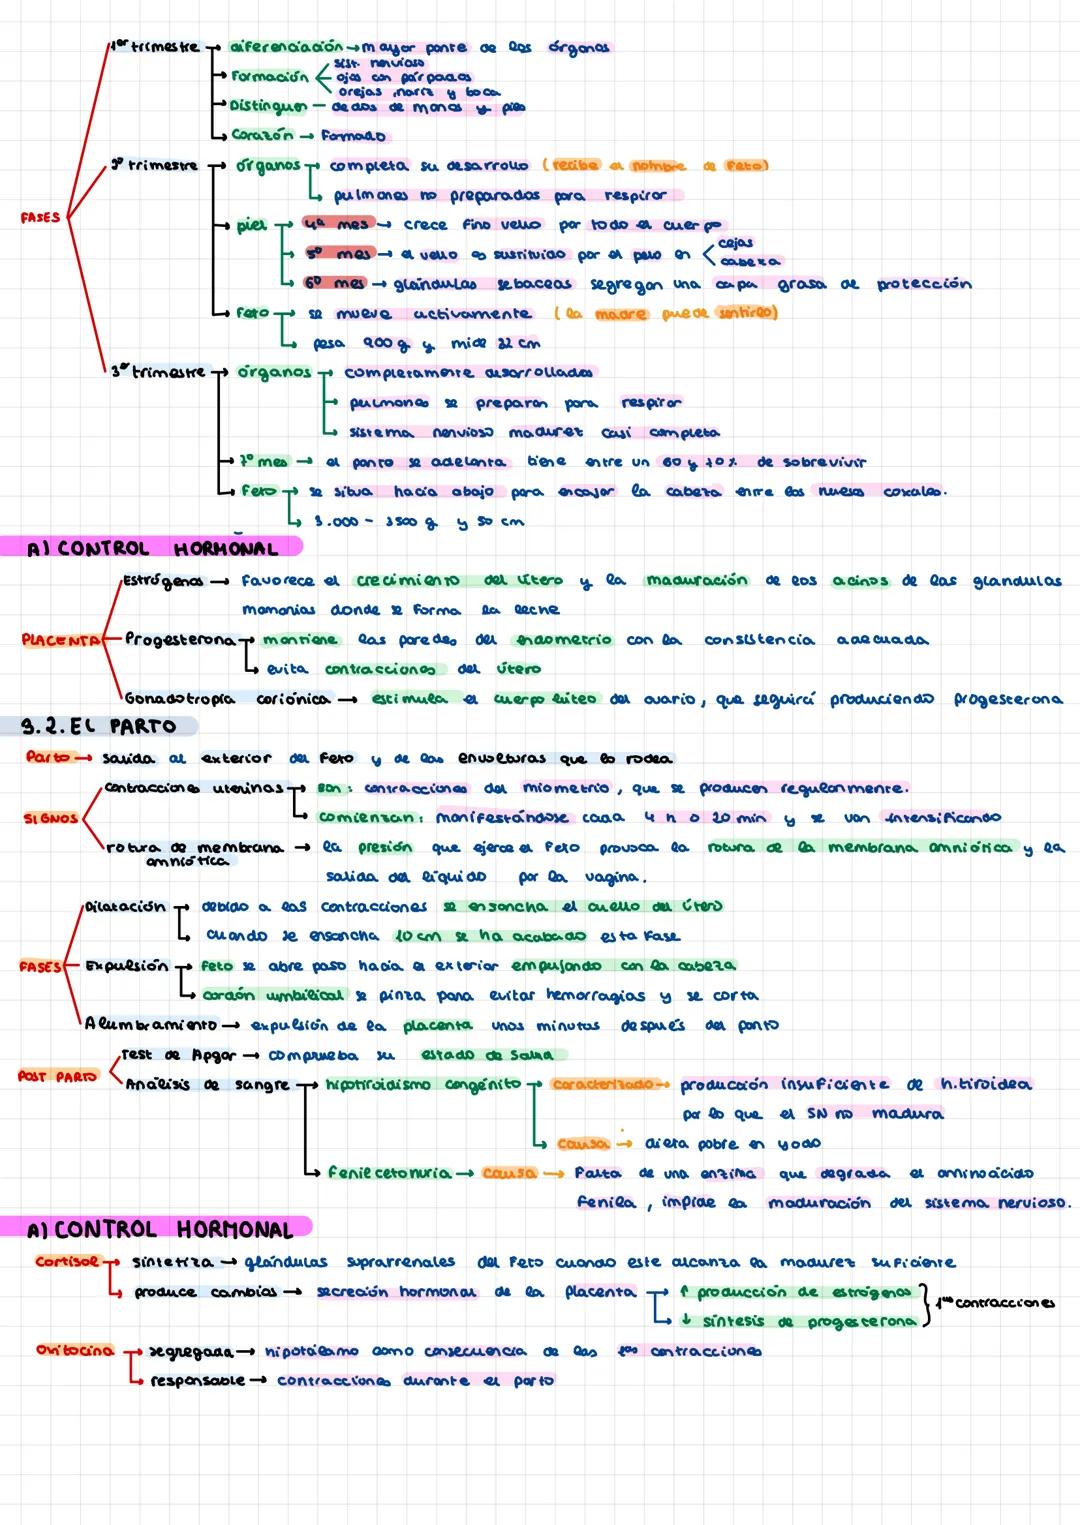 1er trimestre → diferenciación → mayor parte de los órganos
Formación < sist. nervioso
ojos con párpados
orejas, nariz y boca
Distinguen — dedos de manos y pies
Corazón → Formado
2º trimestre → órganos → completa su desarrollo (recibe el nombre de Feto)
pulmones no preparados para respirar
FASES
piel → 4º mes → crece Fino vello por todo el cuerpo
5º mes → el vello es sustituido por el pelo en < cejas
cabeza
6º mes → glándulas sebaceas segregan una capa grasa de protección
Feto → se mueve activamente (la madre puede sentirlo)
pesa 900 g y mide 32 cm
3er trimestre → órganos → completamente desarrollados
pulmones se preparan para respirar
sistema nervioso madurez casi completa
7º mes → el parto se adelanta tiene entre un 60 y 70% de sobrevivir
Feto → se situa hacia abajo para encajar la cabeza entre los huesos coxales.
3.000 - 3500 g y 50 cm
A) CONTROL HORMONAL
Estrógenos → Favorece el crecimiento del útero y la maduración de los acinos de las glandulas
mamarias donde se forma la leche
PLACENTA Progesterona → mantiene las paredes del endometrio con la consistencia adecuada
evita contracciones del útero
Gonadotropía coriónica → estimula el cuerpo lúteo del ovario, que seguirá produciendo progesterona
3.2. EL PARTO
Parto → salida al exterior del Feto y de las envolturas que lo rodea
contracciones uterinas → son: contracciones del miometrio, que se producen regularmente.
SIGNOS comienzan: manifestándose cada 4 h o 20 min y se van intensificando
rotura de membrana amniótica → la presión que ejerce el Feto provoca la rotura de la membrana amniótica y la
salida del líquido por la vagina.
Dilatación → debido a las contracciones se ensancha el cuello del útero
cuando se ensancha 10 cm se ha acabado esta Fase
FASES Expulsión → Feto se abre paso hacia el exterior empujando con la cabeza
cordón umbilical se pinza para evitar hemorragias y se corta
Alumbramiento → expulsión de la placenta unos minutos después del parto
Test de Apgar → comprueba su estado de salud
POST PARTO Análisis de sangre → hipotiroidismo congénito → caracterizado → producción insuficiente de h.tiroidea
por lo que el SN no madura
causa → dieta pobre en yodo
Fenilcetonuria → causa → Falta de una enzima que degrada el aminoácido
Fenila, impide la maduración del sistema nervioso.
A) CONTROL HORMONAL
Cortisol → sintetiza → glándulas suprarrenales del Feto cuando este alcanza la madurez suficiente
produce cambios → secreción hormonal de la placenta → ↑ producción de estrógenos } 1ras contracciones
↓ síntesis de progesterona
Oxitocina → segregada → hipotálamo como consecuencia de las 1ras contracciones
responsable → contracciones durante el parto